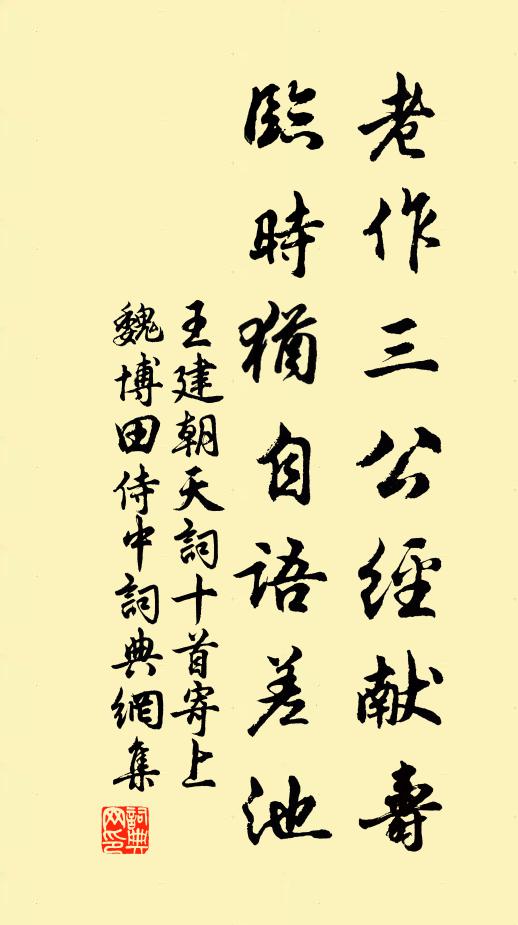 老作三公經献壽
臨時猶自語差池
王建朝天詞十首寄上
魏博田侍中詞典網集
詞典
网印